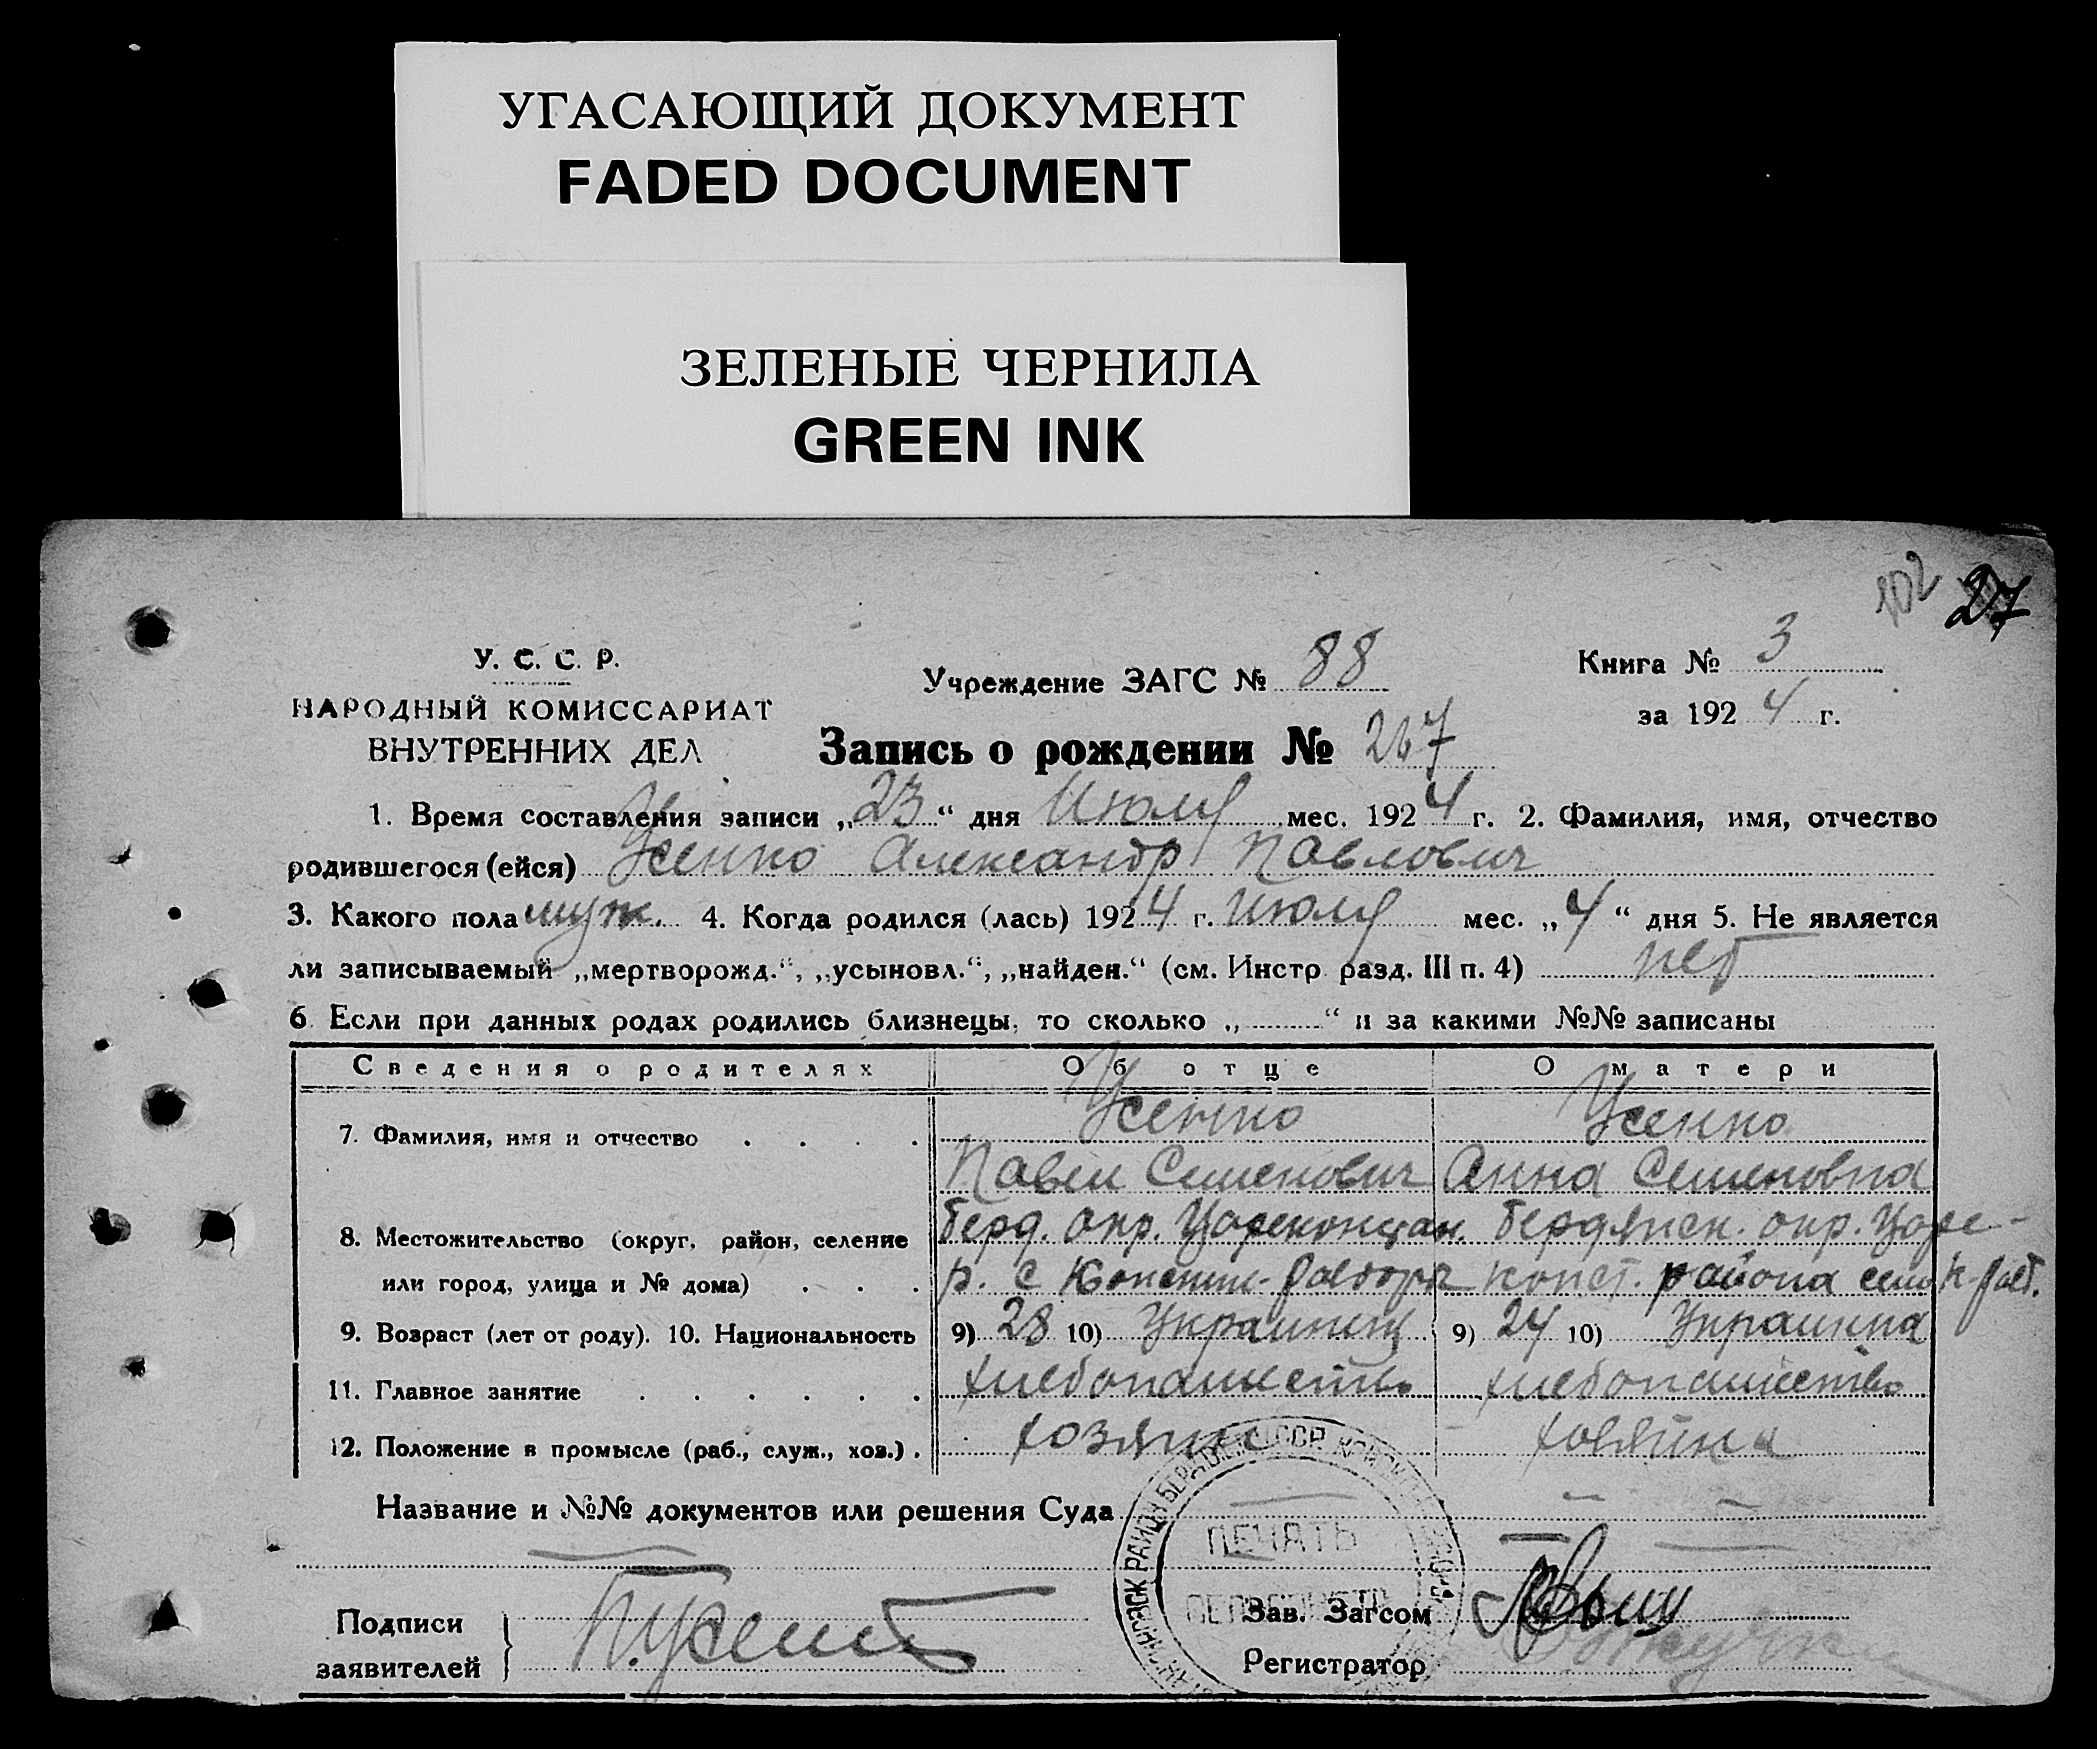 УГАСАЮЩИЙ ДОКУМЕНТ
FADED DOCUMENT
ЗЕЛЕНЫЕ ЧЕРНИЛА
GREEN INK
102 27
У. С. С. Р.
НАРОДНЫЙ КОМИССАРИАТ
ВНУТРЕННИХ ДЕЛ
Учреждение ЗАГС № 88
Книга № 3
за 1924 г.
Запись о рождении № 267
1. Время составления записи „23“ дня Июля мес. 1924 г. 2. Фамилия, имя, отчество
родившегося (ейся) Усенко Александр Павлович
3. Какого пола муж. 4. Когда родился (лась) 1924 г. Июля мес. „4“ дня 5. Не является
ли записываемый „мертворожд.“, „усыновл.“, „найден.“ (см. Инстр. разд. III п. 4) нет
6. Если при данных родах родились близнецы, то сколько „ “ и за какими №№ записаны
Сведения о родителях Об отце О матери
7. Фамилия, имя и отчество Усенко Усенко
Павел Семенович Анна Семеновна
8. Местожительство (округ, район, селение Берд. окр. Цареконстан. Бердянск. окр. Царе-
или город, улица и № дома) р. с Констант. Конст. района село К.
9. Возраст (лет от роду). 10. Национальность 9) 28 10) Украинец 9) 24 10) Украинка
11. Главное занятие хлебопашество хлебопашество
12. Положение в промысле (раб., служ., хоз.) хозяин хозяйка
Название и №№ документов или решения Суда
ПЕЧАТЬ
Подписи
заявителей
П. Усенко
Зав. Загсом
Регистратор